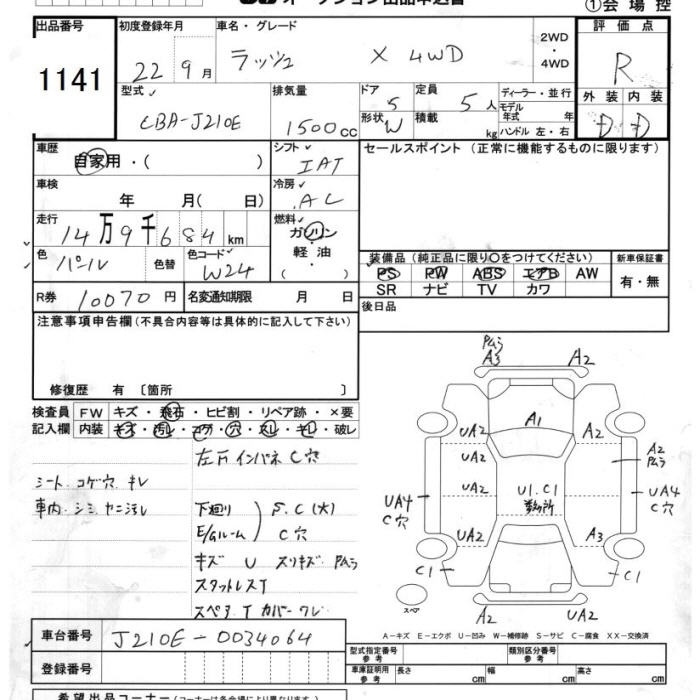 ①会場控
出品番号 初度登録年月 車名・グレード 2WD・4WD 評価点
1141 22年9月 ラッシュ X 4WD R
型式 排気量 ドア 定員 ディーラー・並行 外装 内装
CBA-J210E 1500cc 5 5人 モデル年式 年 D D
形状 W 積載 kg ハンドル 左・右
車歴 シフト セールスポイント (正常に機能するものに限ります)
自家用・( ) IAT
車検 冷房
年 月(日) AC
走行 燃料
14万9千684km ガソリン・軽油・( )
色 色替 色コード 装備品 (純正品に限り○をつけてください) 新車保証書
パール W24 PS PW ABS エアB AW 有・無
SR ナビ TV カワ
R券 10070円 名変通知期限 月 日 後日品
注意事項申告欄(不具合内容等は具体的に記入して下さい)
修復歴 有 〔箇所 〕
検査員 FW キズ・飛石・ヒビ割・リペア跡・×要
記入欄 内装 キズ・汚レ・コゲ・穴・スレ・キレ・破レ
左右インパネC穴
シート、コゲ穴、キレ
車内、シミ、ヤニ汚レ
下廻り S.C(大)
E/Gルーム C穴
キズ U スリキズ Pムラ
スタットレスT
スペアTカバーワレ
Pムラ
A3 A2
A1
UA2 A2
UA2 A2 Pムラ
UA4 C穴 UA2 U1.C1 数ヶ所 UA4 C穴
UA2 A3
C1 C1
スペア A2 UA2
A-キズ E-エクボ U-凹み W-補修跡 S-サビ C-腐食 XX-交換済
車台番号 J210E-0034064
型式指定番号 参考 類別区分番号 参考
登録番号 車庫証明用 参考 長さ cm 幅 cm 高さ cm